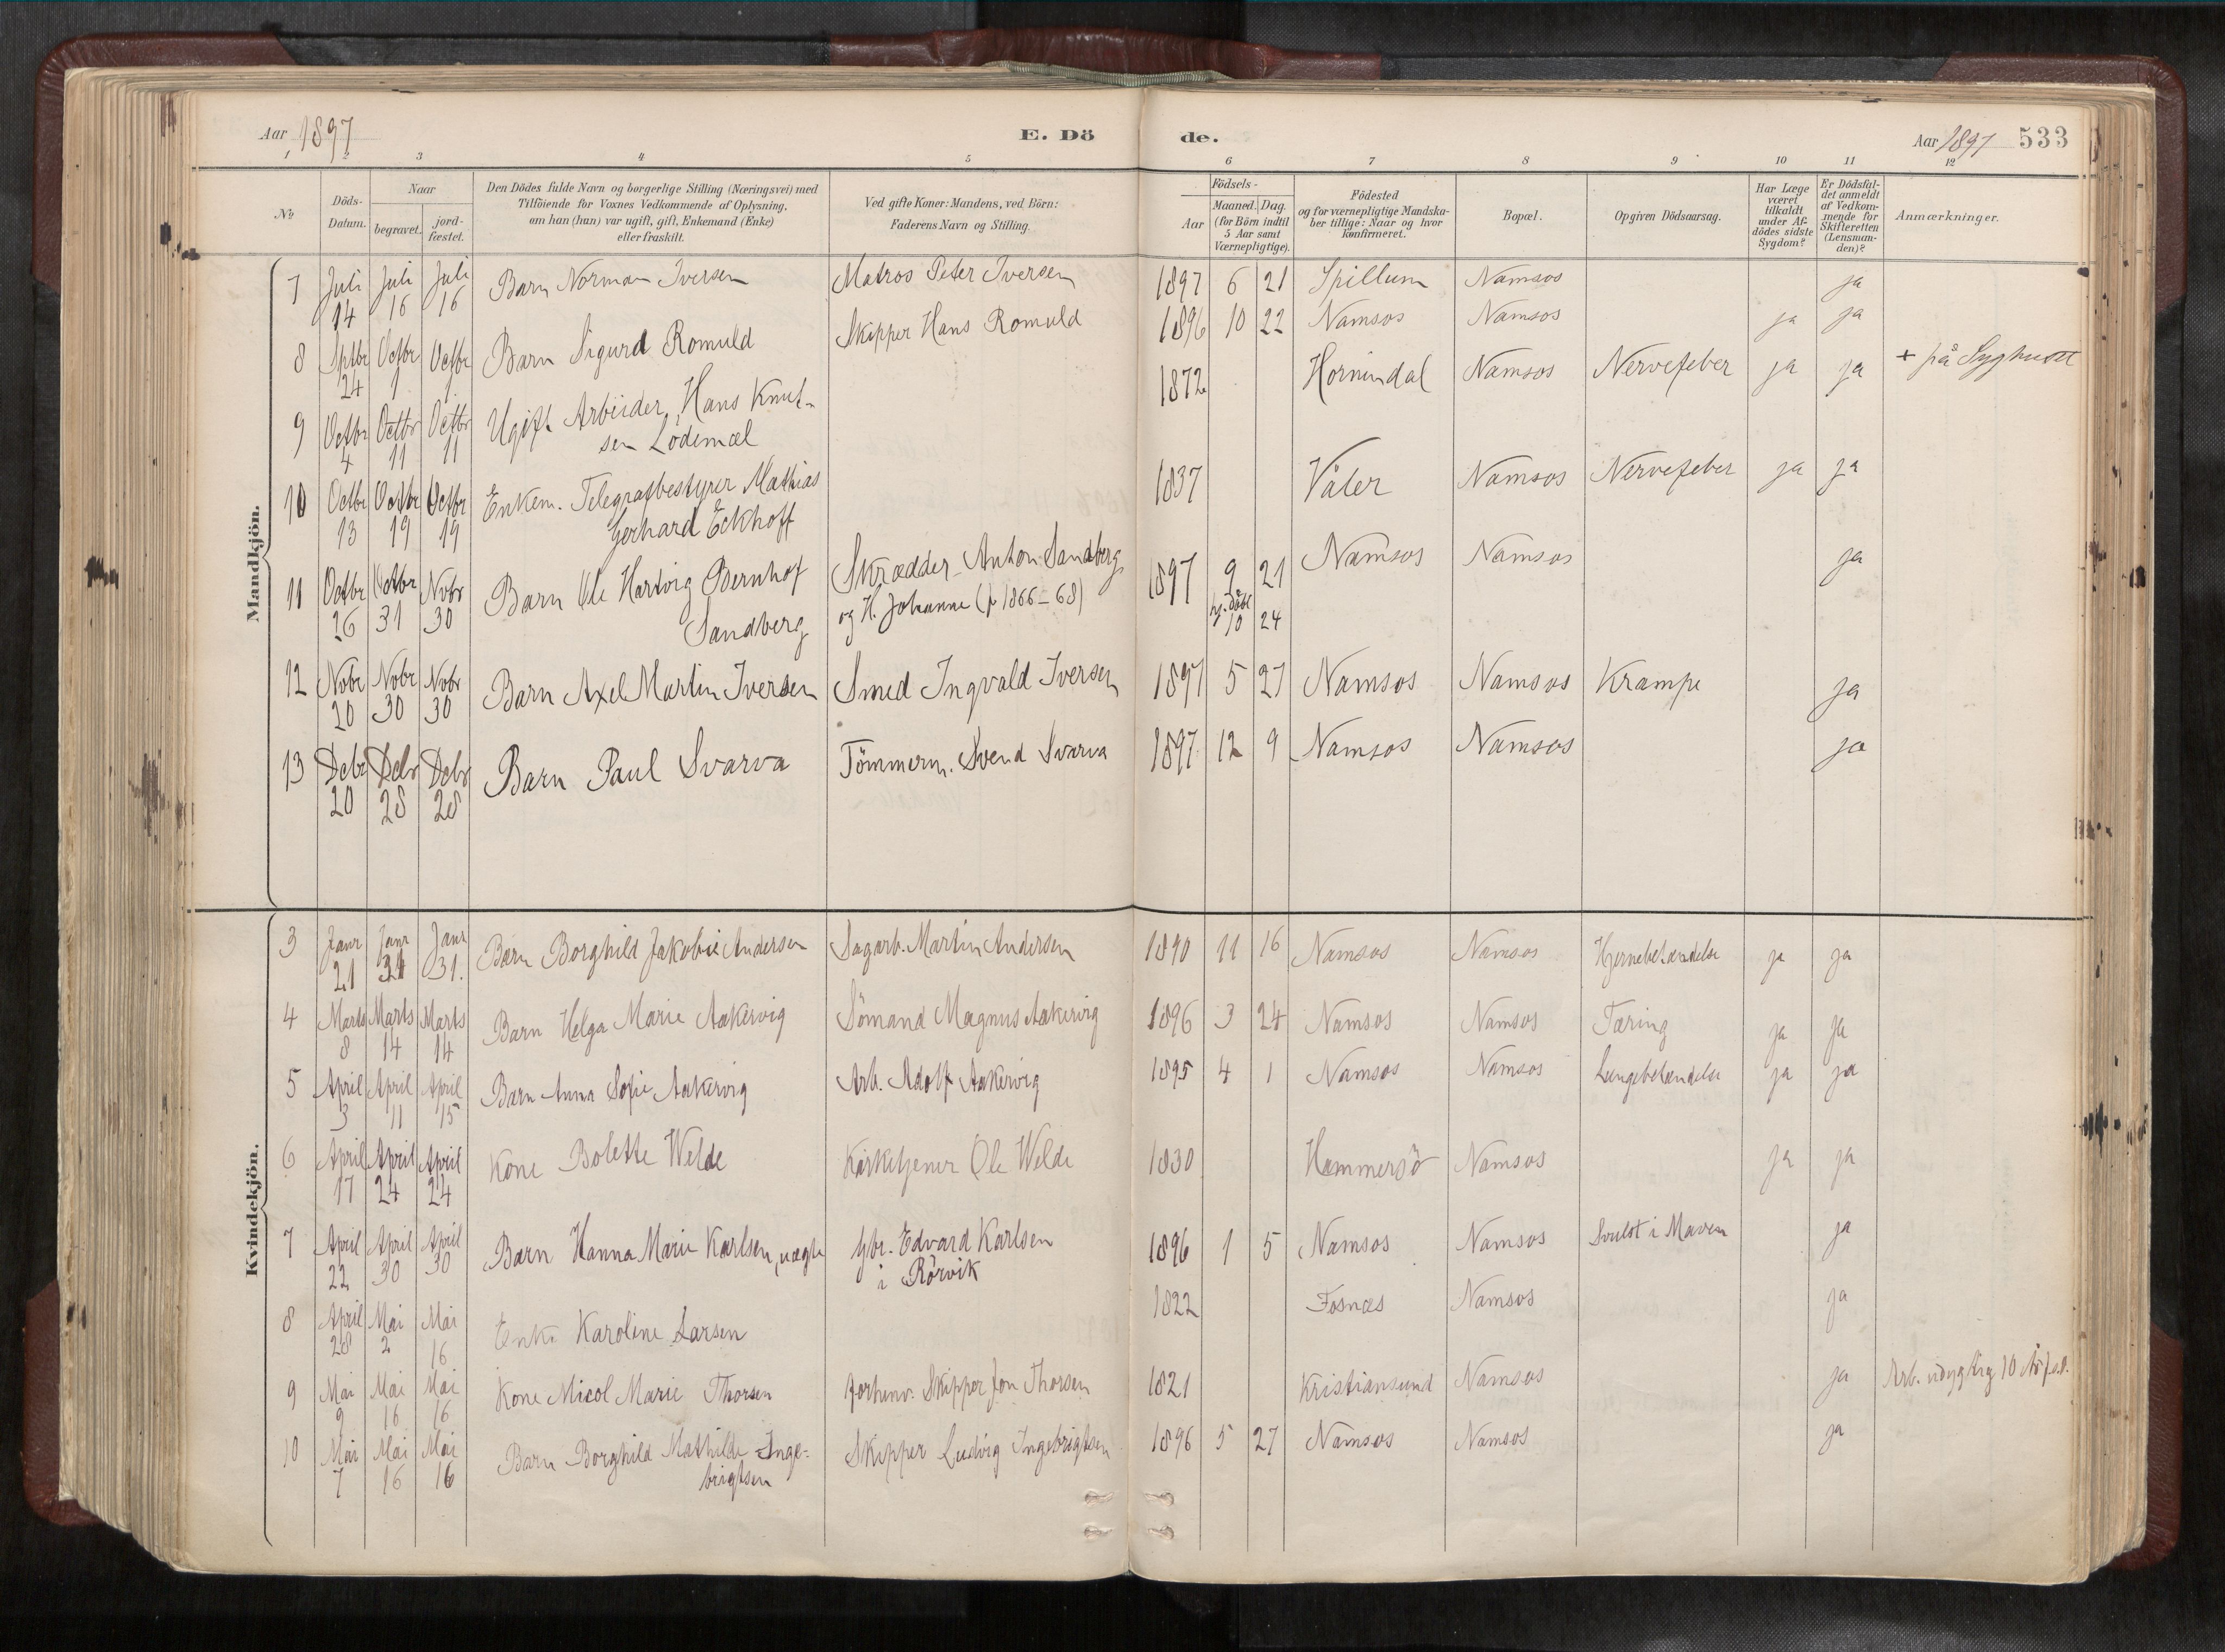 Aar 1897
E. Dö
de.
Aar 1897 533
1 2 3 4 5 6 7 8 9 10 11 12
No
Döds-Datum.
Naar
begravet.
jord-fæstet.
Den Dödes fulde Navn og borgerlige Stilling (Næringsvei) med
Tilföiende for Voxnes Vedkommende af Oplysning,
om han (hun) var ugift, gift, Enkemand (Enke)
eller fraskilt.
Ved gifte Koner: Mandens, ved Börn:
Faderens Navn og Stilling.
Födsels-
Aar
Maaned. Dag.
(for Börn indtil
5 Aar samt
Værnepligtige).
Födested
og for værnepligtige Mandska-
ber tillige: Naar og hvor
konfirmeret.
Bopæl.
Opgiven Dödsaarsag.
Har Læge
været
tilkaldt
under Af-
dödes sidste
Sygdom?
Er Dödsfal-
det anmeldt
af Vedkom-
mende for
Skifteretten
(Lensman-
den)?
Anmærkninger.
Mandkjön.
7 Juli 14 Juli 16 Juli 16 Barn Norman Iversen Matros Peter Iversen 1897 6 21 Spillum Namsos ja
8 Sptbr 24 Octbr 1 Octbr 1 Barn Sigurd Romuld Skipper Hans Romuld 1896 10 22 Namsos Namsos ja ja
9 Octbr 4 Octbr 11 Octbr 11 Ugift Arbeider, Hans Knut-
sen Lödemæl 1872 Hornindal Namsos Nervefeber ja ja + på Syghuset
10 Octbr 13 Octbr 19 Octbr 19 Enkem. Telegrafbestyrer Mathias
Gerhard Eckhoff 1837 Våler Namsos Nervefeber ja ja
11 Octbr 26 Octbr 31 Nobr 30 Barn Ole Hartvig Bernhof
Sandberg Skrædder Anton Sandberg
og H. Johanne (f 1866-68) 1897 9 21 Namsos Namsos ja
hj. döbt
10 24
12 Nobr 20 Nobr 30 Nobr 30 Barn Axel Martin Iversen Smed Ingvald Iversen 1897 5 27 Namsos Namsos Krampe ja
13 Debr 20 Debr 28 Debr 28 Barn Paul Svarva Tömmerm. Svend Svarva 1897 12 9 Namsos Namsos ja
Kvindekjön.
3 Janr 21 Janr 31 Janr 31. Barn Borghild Jakobie Andersen Sagarb. Martin Andersen 1890 11 16 Namsos Namsos Hjernebetændelse ja ja
4 Marts 8 Marts 14 Marts 14 Barn Helga Marie Aakervig Sömand Magnus Aakervig 1896 3 24 Namsos Namsos Tæring ja ja
5 April 3 April 11 April 15 Barn Anna Sofie Aakervig Arb. Adolf Aakervig 1895 4 1 Namsos Namsos Lungebetændelse ja ja
6 April 17 April 24 April 24 Kone Bolette Welde Kirketjener Ole Welde 1830 Hammersö Namsos ja ja
7 April 22 April 30 April 30 Barn Hanna Marie Karlsen, uægte Gbr. Edvard Karlsen
i Rörvik 1896 1 5 Namsos Namsos Svulst i Maven ja
8 April 28 Mai 2 Mai 16 Enke Karoline Larsen 1822 Fosnæs Namsos ja
9 Mai 9 Mai 16 Mai 16 Kone Micol Marie Thorsen forhenv. Skipper Jon Thorsen 1821 Kristiansund Namsos ja Arb. udygtig 10 År
10 Mai 7 Mai 16 Mai 16 Barn Borghild Mathilde Inge-
brigtsen Skipper Ludvig Ingebrigtsen 1896 5 27 Namsos Namsos ja